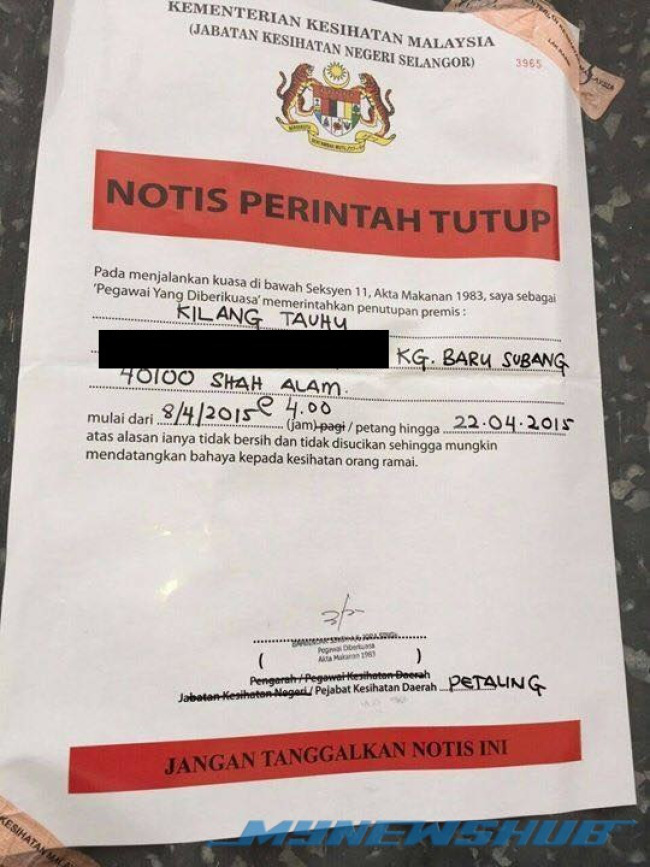 KEMENTERIAN KESIHATAN MALAYSIA
(JABATAN KESIHATAN NEGERI SELANGOR)
3965
NOTIS PERINTAH TUTUP
Pada menjalankan kuasa di bawah Seksyen 11, Akta Makanan 1983, saya sebagai
'Pegawai Yang Diberikuasa' memerintahkan penutupan premis :
KILANG TAUHU
KG. BARU SUBANG
40100 SHAH ALAM.
mulai dari 8/4/2015 @ 4.00 (jam) pagi / petang hingga 22.04.2015
atas alasan ianya tidak bersih dan tidak disucikan sehingga mungkin
mendatangkan bahaya kepada kesihatan orang ramai.
Pegawai Diberkuasa
( Akta Makanan 1983 )
Pengarah / Pegawai Kesihatan Daerah
Jabatan Kesihatan Negeri / Pejabat Kesihatan Daerah PETALING
JANGAN TANGGALKAN NOTIS INI
MYNEWSHUB